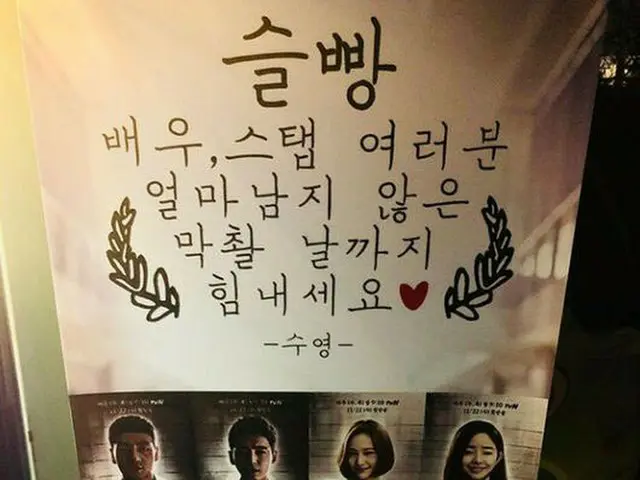 슬빵
배우,스탭 여러분
얼마남지 않은
막촬 날까지
힘내세요♥
-수영-
tvN
tvN
tvN
tvN